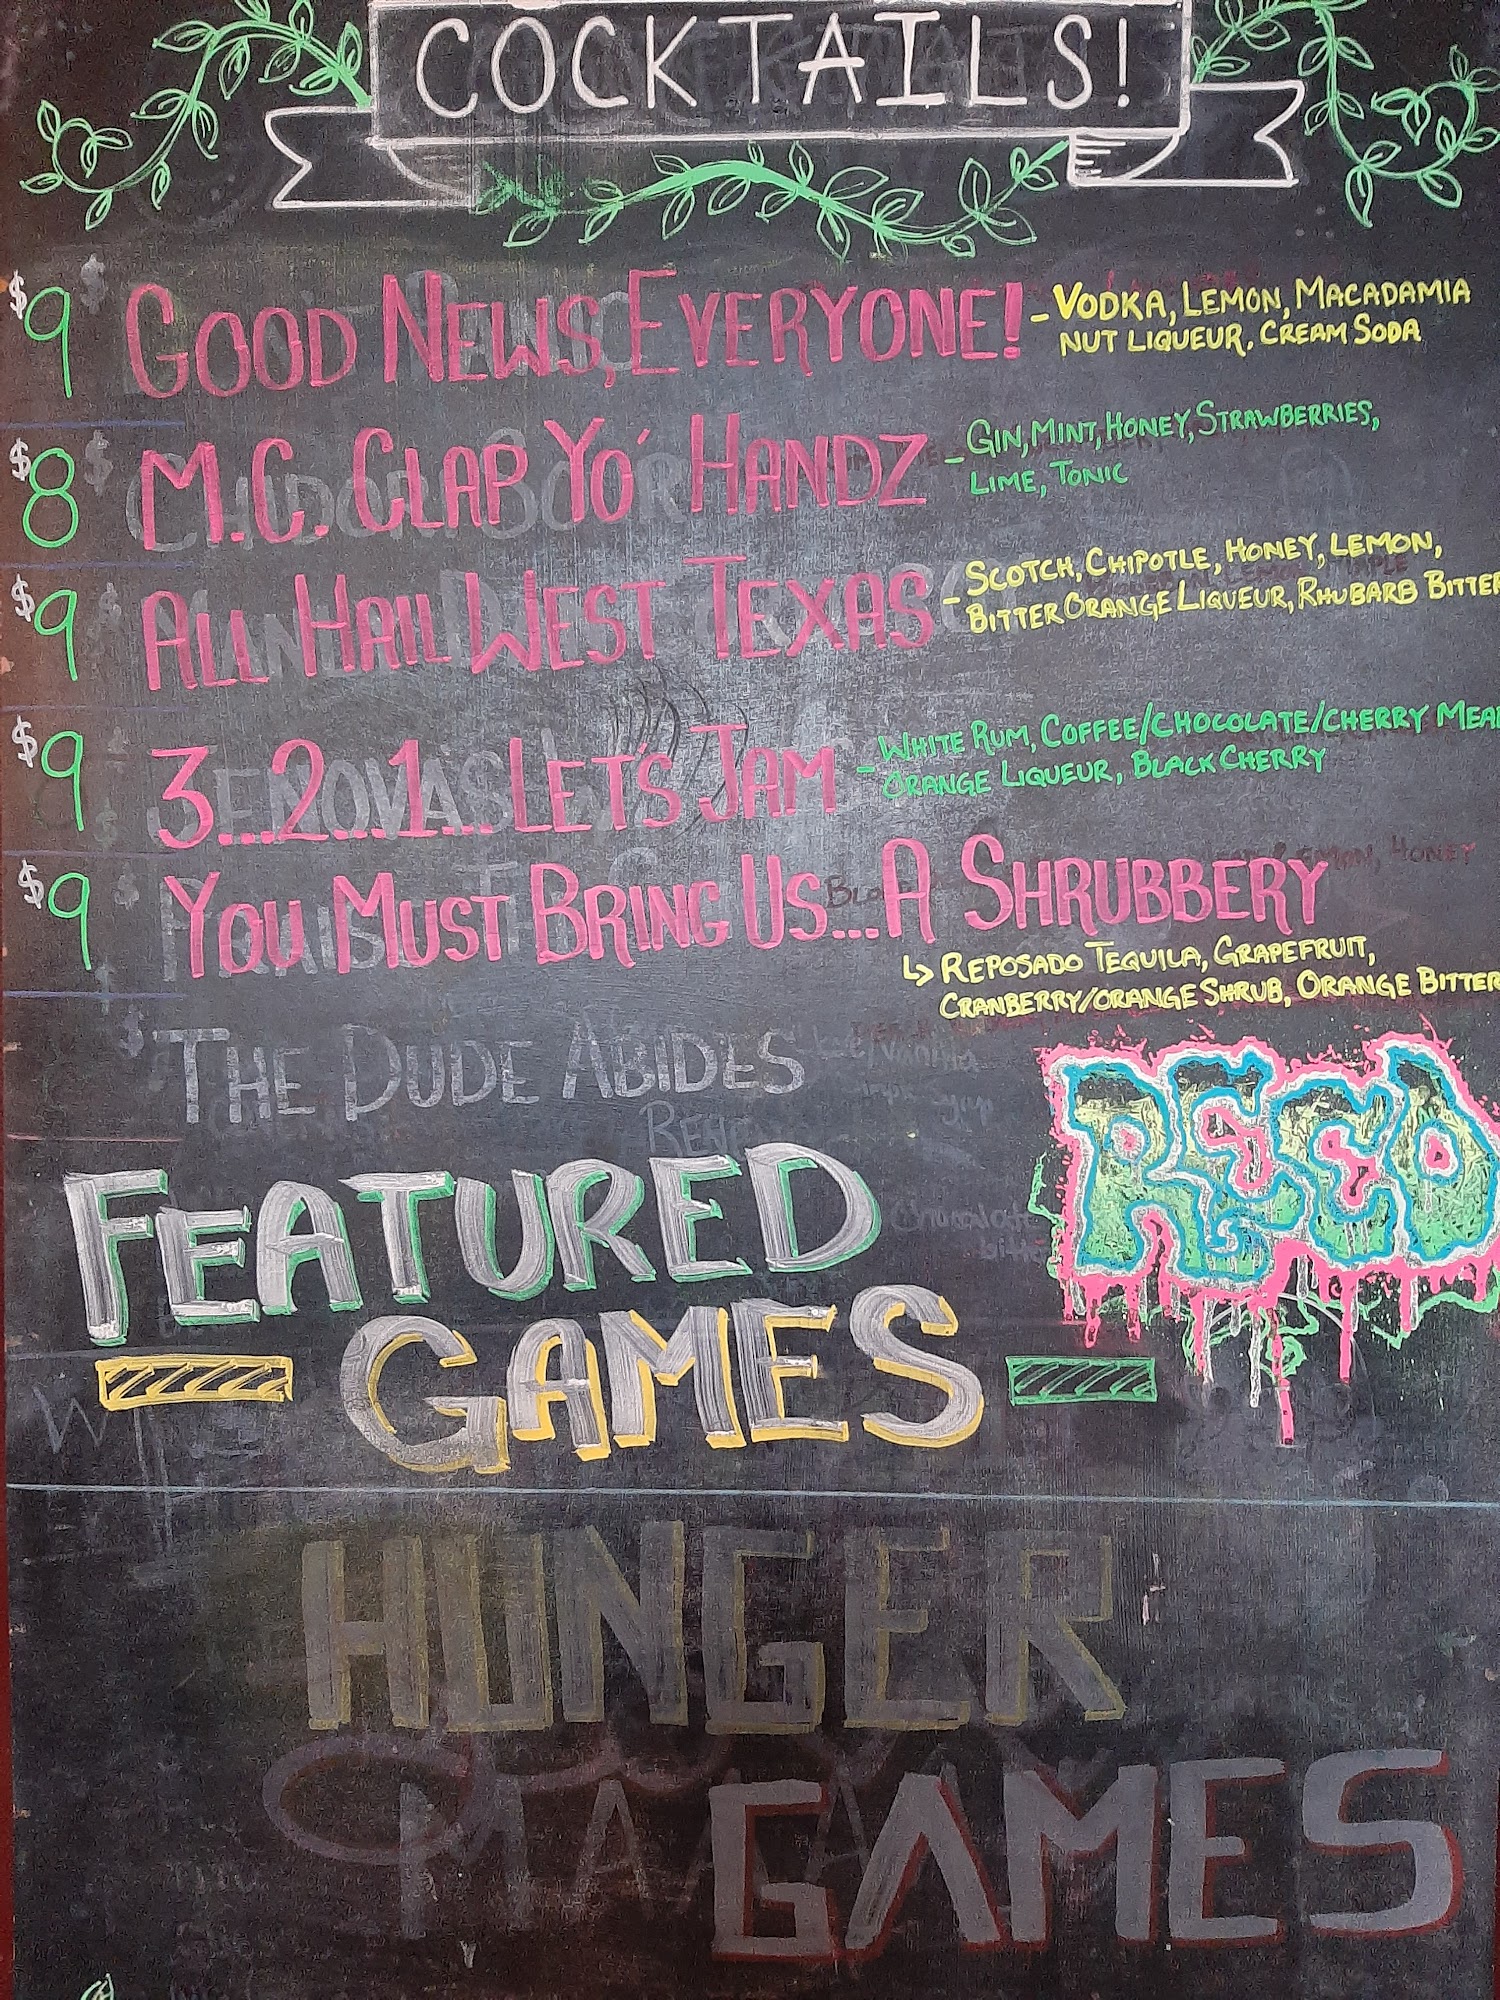 COCKTAILS!
$9 GOOD NEWS, EVERYONE! - VODKA, LEMON, MACADAMIA
NUT LIQUEUR, CREAM SODA
$8 M.C. CLAP YO' HANDZ - GIN, MINT, HONEY, STRAWBERRIES,
LIME, TONIC
$9 ALL HAIL WEST TEXAS - SCOTCH, CHIPOTLE, HONEY, LEMON,
BITTER ORANGE LIQUEUR, RHUBARB BITTER
$9 3...2...1... LET'S JAM - WHITE RUM, COFFEE/CHOCOLATE/CHERRY MEAD
ORANGE LIQUEUR, BLACK CHERRY
$9 YOU MUST BRING US... A SHRUBBERY
↳ REPOSADO TEQUILA, GRAPEFRUIT,
CRANBERRY/ORANGE SHRUB, ORANGE BITTER
THE DUDE ABIDES
FEATURED
GAMES
HUNGER
GAMES